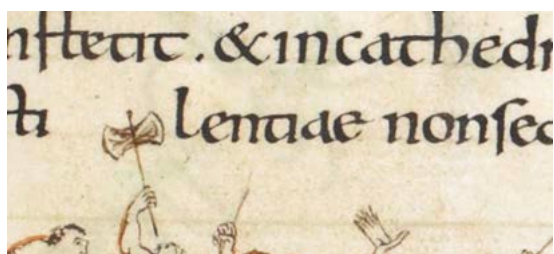 nſtetit. & in cathedr
ſti lentiae non ſed